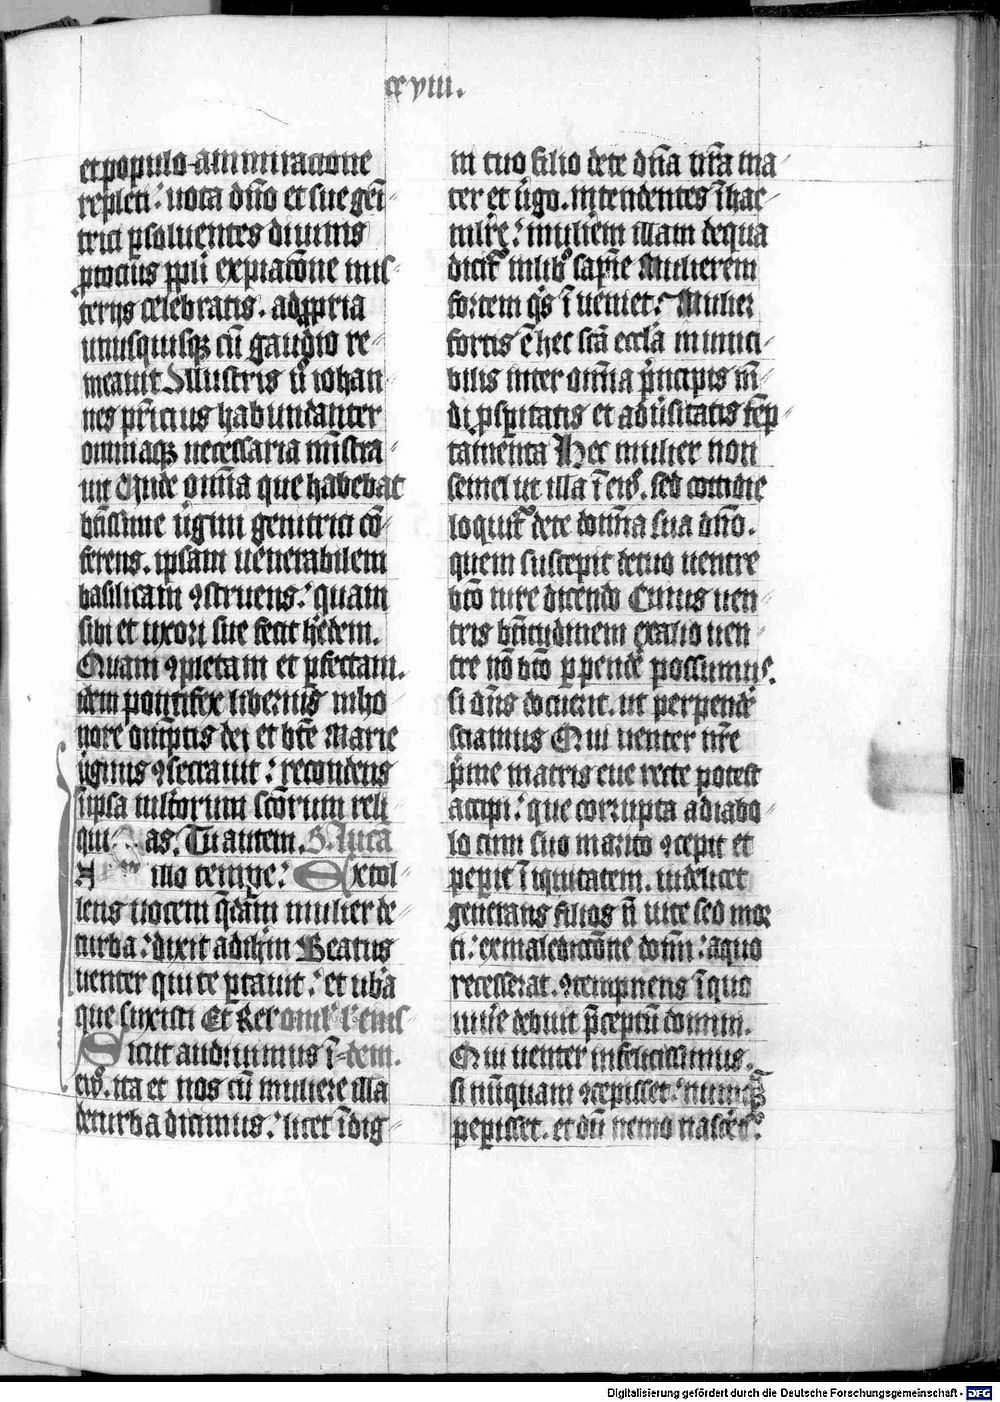 cxviii.
et populo ammiracione
repleti: uota dño et sue geni-
trici psoluentes diuinis
ptocius ppli expiacõne mis-
terijs celebratis. ad ppria
unusquisqꝫ cũ gaudio re-
meauit Illustris ũ iohan-
nes pr̃icius habundanter
omniaqꝫ necessaria m̃istra-
uit Unde om̃ia que habebat
btĩssime ũgini genitrici cõ-
ferens. ipsam uenerabilem
basilicam ꝯstruens: quam
sibi et uxori sue fecit hẽdem.
Quam ꝯpletam et pfectam.
idem pontifex liberius in ho-
nore om̃iptis dei et bt̃e Marie
ũginis ꝯsecrauit: recondens
ĩ ipsa multorum sc̃orum reli
quias. Tu autem. S. lucã
In illo tempe: Extol-
lens uocem q̃dam mulier de-
turba: dixit ad ihm̃ Beatus
uenter qui te ptauit: et ub̃a
que suxisti Et Rel
Sicut audiuimus ĩ-dem.
ita et nos cũ muliere illa
de turba dicimus: licet ĩdig-
in tuo filio de te dña nr̃a ma-
ter et ũgo. intendentes ĩ hac-
mulie͛: muliem illam de qua
dicit᷑ in lib̾ sapñe Mulierem
fortem q̾s ĩueniet: Mulier
fortis ẽ hec sc̃a eccl̃a inuinci-
bilis inter om̃ia p̃ncipis mũ-
di psperitatis et aduͥsitatis tẽp-
tamenta Hec mulier non
semel ut illa ĩ sed cottidie
loquit᷑ de te domĩa sua dño.
quem suscepit de tuo uentre
bt̃o iure dicendo Cuius uen-
tris bt̃itudinem ex alio uen-
tre nõ bt̃o p pende͛ possumus.
si dñs docuerit. ut perpende͛
sciamus Qui uenter nr̃e
p̃me matris eue recte potest
accipi: que corrupta a diabo-
lo cum suo marito ꝯcepit et
pepit ĩiquitatem. uidelicet
generans filios ñ uite sed mor
ti: ex maledictõne domĩ: a quo
recesserat. ꝯtempnens ĩ quo
uiue͛ debuit p̃ceptũ domini.
Qui uenter infelicissimus.
si nũquam ꝯcepisset: nunqͣꝫ
pepisset. et dũ nemo nasce͛t᷑.
Digitalisierung gefördert durch die Deutsche Forschungsgemeinschaft - DFG